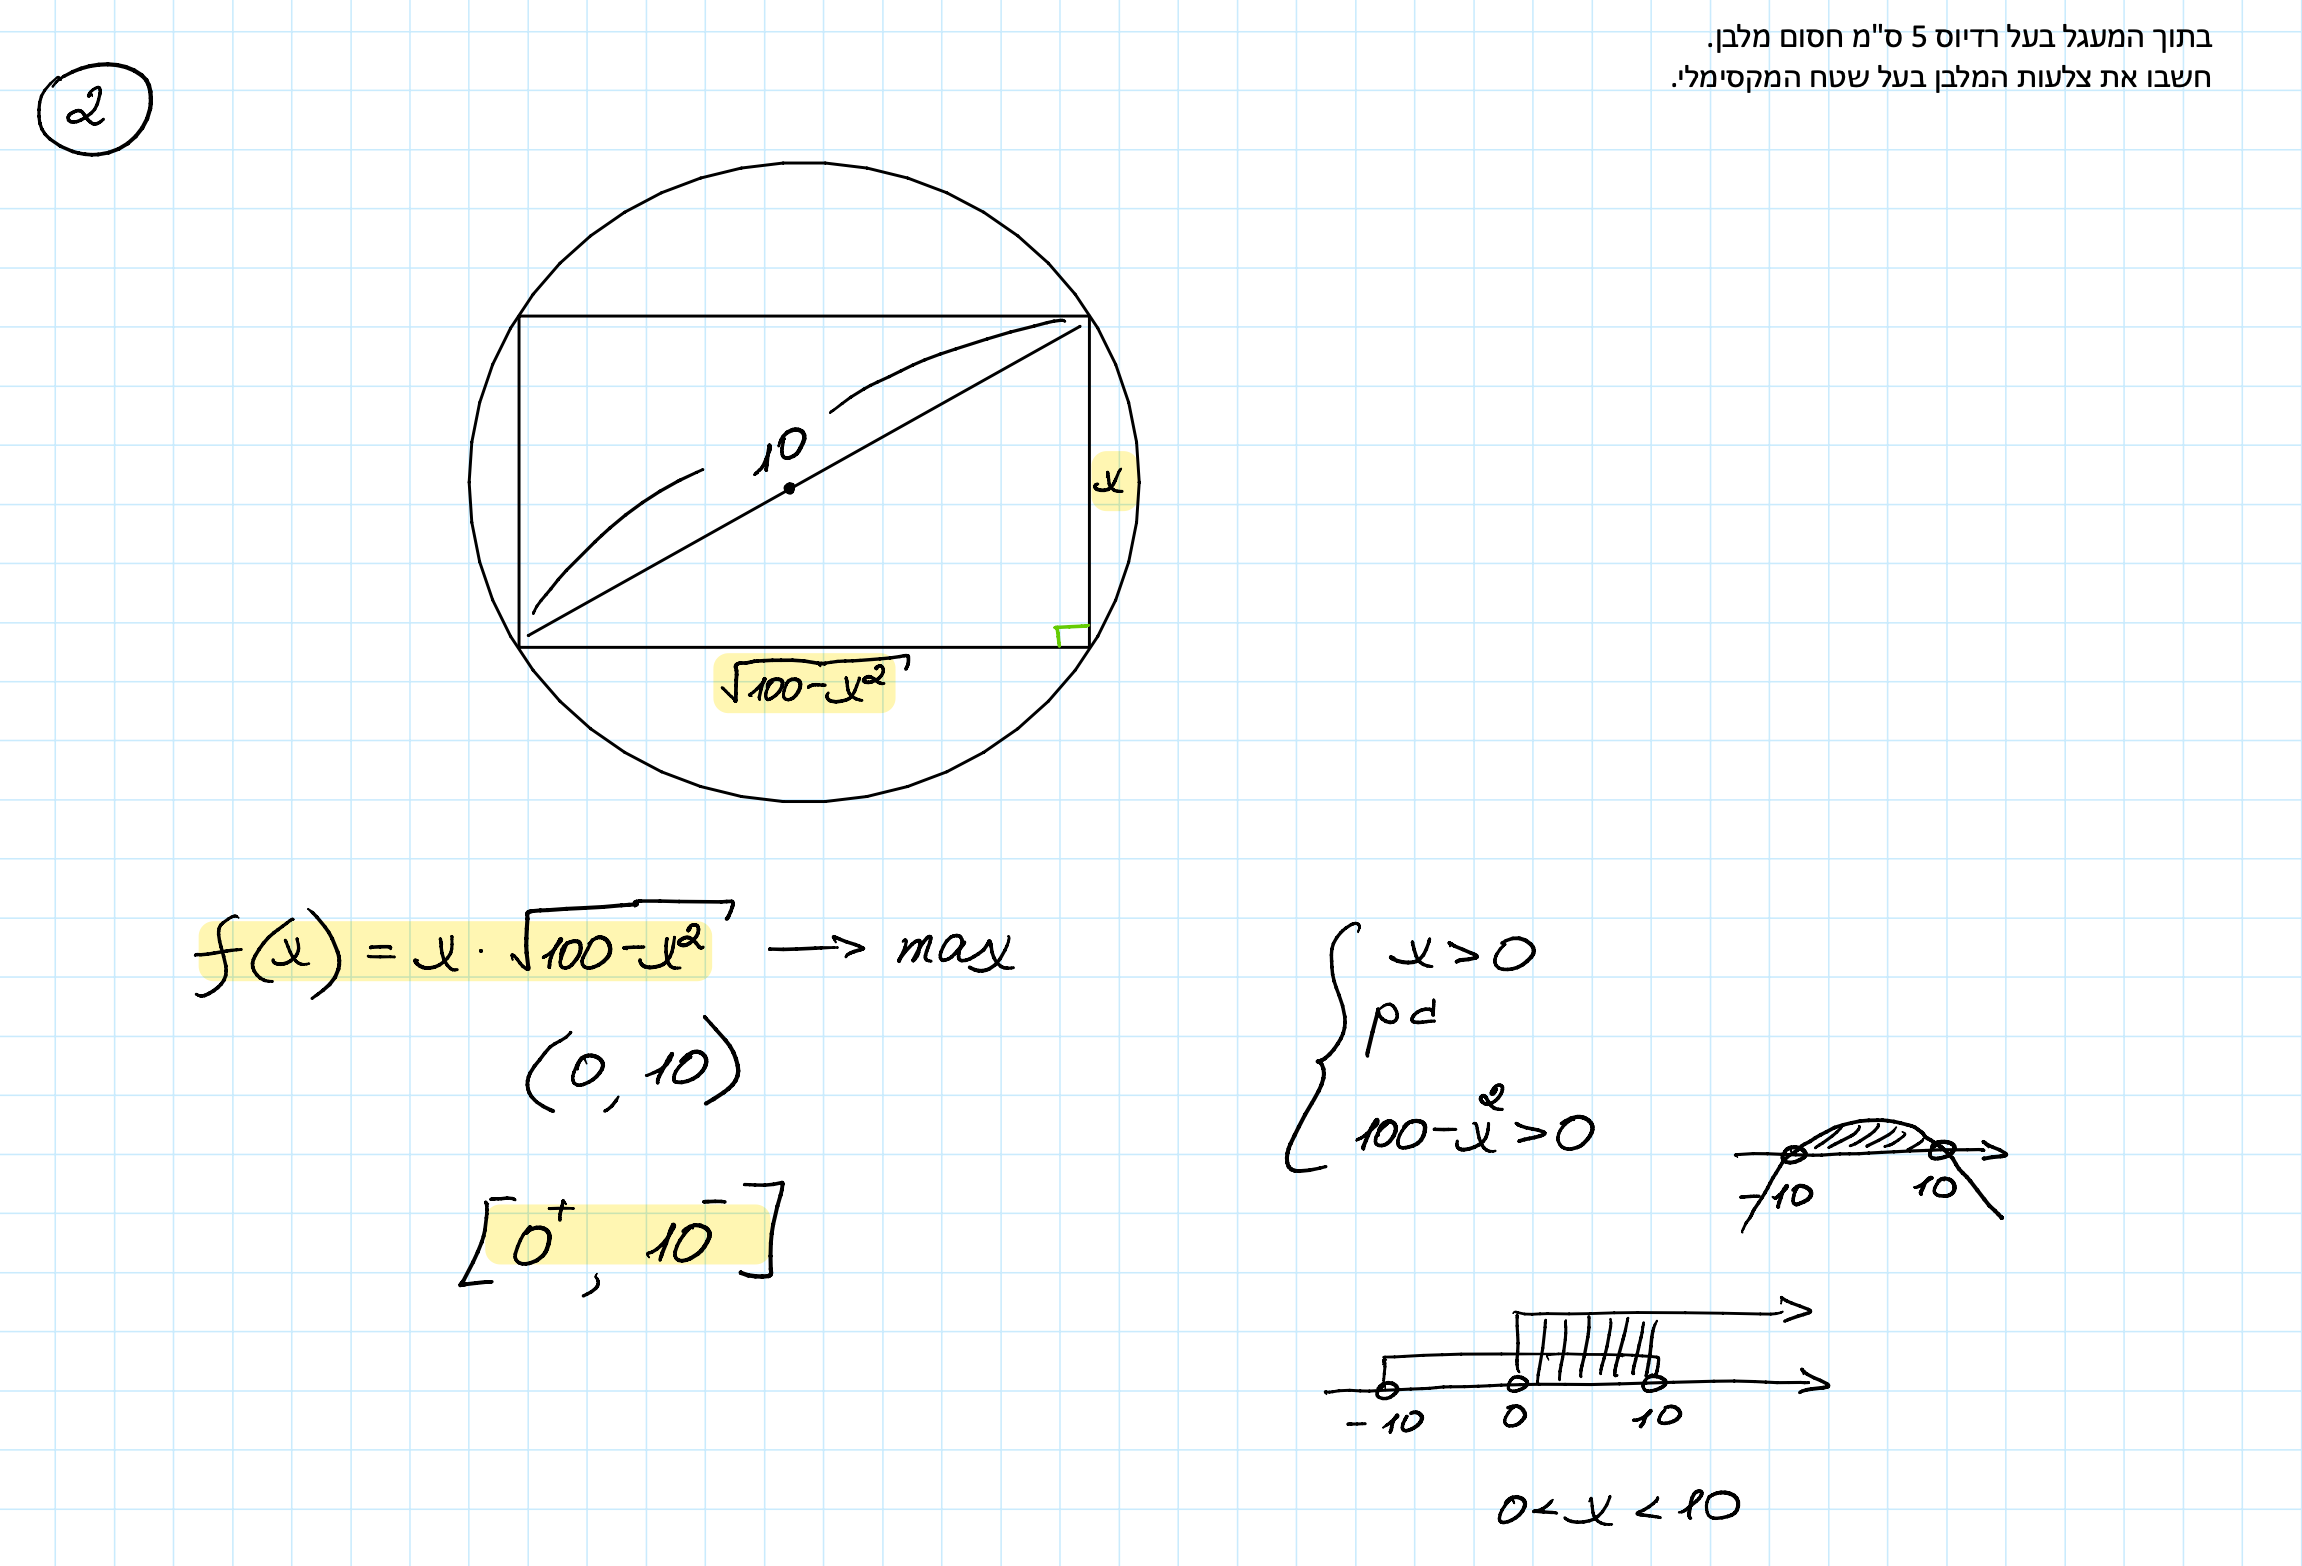 בתוך המעגל בעל רדיוס 5 ס"מ חסום מלבן.
חשבו את צלעות המלבן בעל שטח המקסימלי.
2
10
x
√100-x²
f(x) = x · √100-x² → max
(0, 10)
[0⁺, 10⁻]
x > 0
וגם
100-x² > 0
-10 10
-10 0 10
0 < x < 10